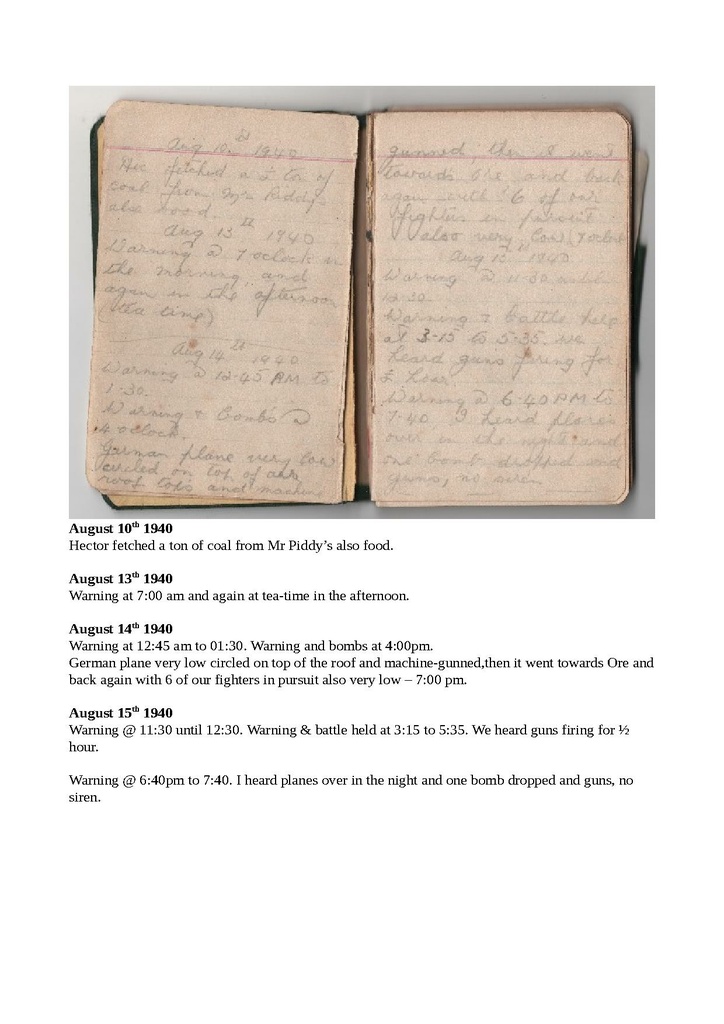 Aug 10th 1940
Hec fetched a ½ ton of
coal from Mr Piddy's
also
Aug 13th 1940
Warning @ 7 oclock in
the morning and
again in the afternoon
(tea time)
Aug 14th 1940
Warning @ 12-45 AM to
1-30.
Warning & Bombs @
4 oclock.
German plane very low
circled on top of
roof tops and machine
gunned, then it went
towards Ore and back
again with 6 of our
fighters in pursuit
also very low (7 oclock
Aug 15th 1940
Warning @ 11-30 until
12-30.
Warning & battle held
at 3-15 to 5-35. we
heard guns firing for
½ hour.
Warning @ 6-40 PM to
7-40 I heard planes
over in the night and
one bomb dropped and
guns, no siren
August 10th 1940
Hector fetched a ton of coal from Mr Piddy’s also food.
August 13th 1940
Warning at 7:00 am and again at tea-time in the afternoon.
August 14th 1940
Warning at 12:45 am to 01:30. Warning and bombs at 4:00pm.
German plane very low circled on top of the roof and machine-gunned,then it went towards Ore and
back again with 6 of our fighters in pursuit also very low – 7:00 pm.
August 15th 1940
Warning @ 11:30 until 12:30. Warning & battle held at 3:15 to 5:35. We heard guns firing for ½
hour.
Warning @ 6:40pm to 7:40. I heard planes over in the night and one bomb dropped and guns, no
siren.